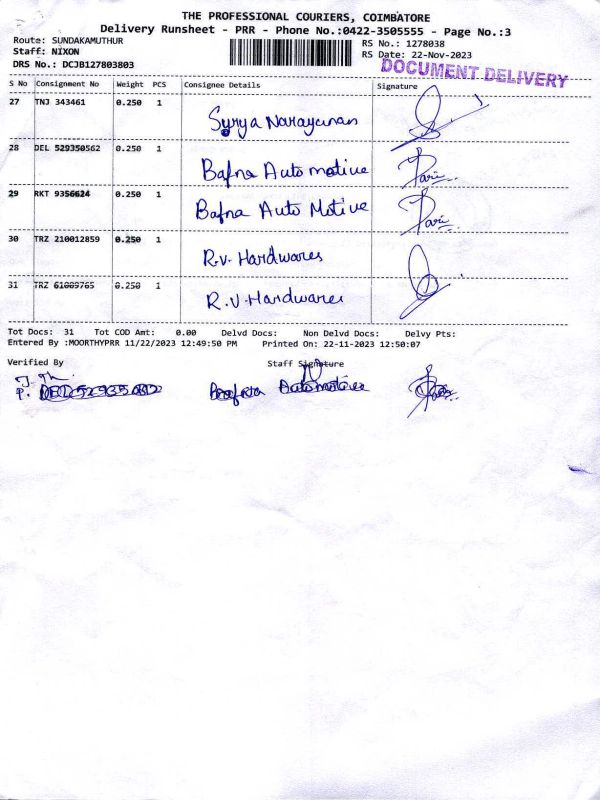 THE PROFESSIONAL COURIERS, COIMBATORE
Delivery Runsheet - PRR - Phone No.:0422-3505555 - Page No.:3
Route: SUNDAKAMUTHUR
RS No.: 1278038
Staff: NIXON
RS Date: 22-Nov-2023
DRS No.: DCJB127803803
DOCUMENT DELIVERY
S No Consignment No Weight PCS Consignee Details Signature
27 TNJ 343461 0.250 1 Surya Narayanan
28 DEL 529350562 0.250 1 Bafna Automotive
29 RKT 9356624 0.250 1 Bafna Auto Motive
30 TRZ 210012859 0.250 1 R.V. Hardwares
31 TRZ 61009765 0.250 1 R.V. Hardwares
Tot Docs: 31 Tot COD Amt: 0.00 Delvd Docs: Non Delvd Docs: Delvy Pts:
Entered By :MOORTHYPRR 11/22/2023 12:49:50 PM Printed On: 22-11-2023 12:50:07
Verified By Staff Signature
Automotive